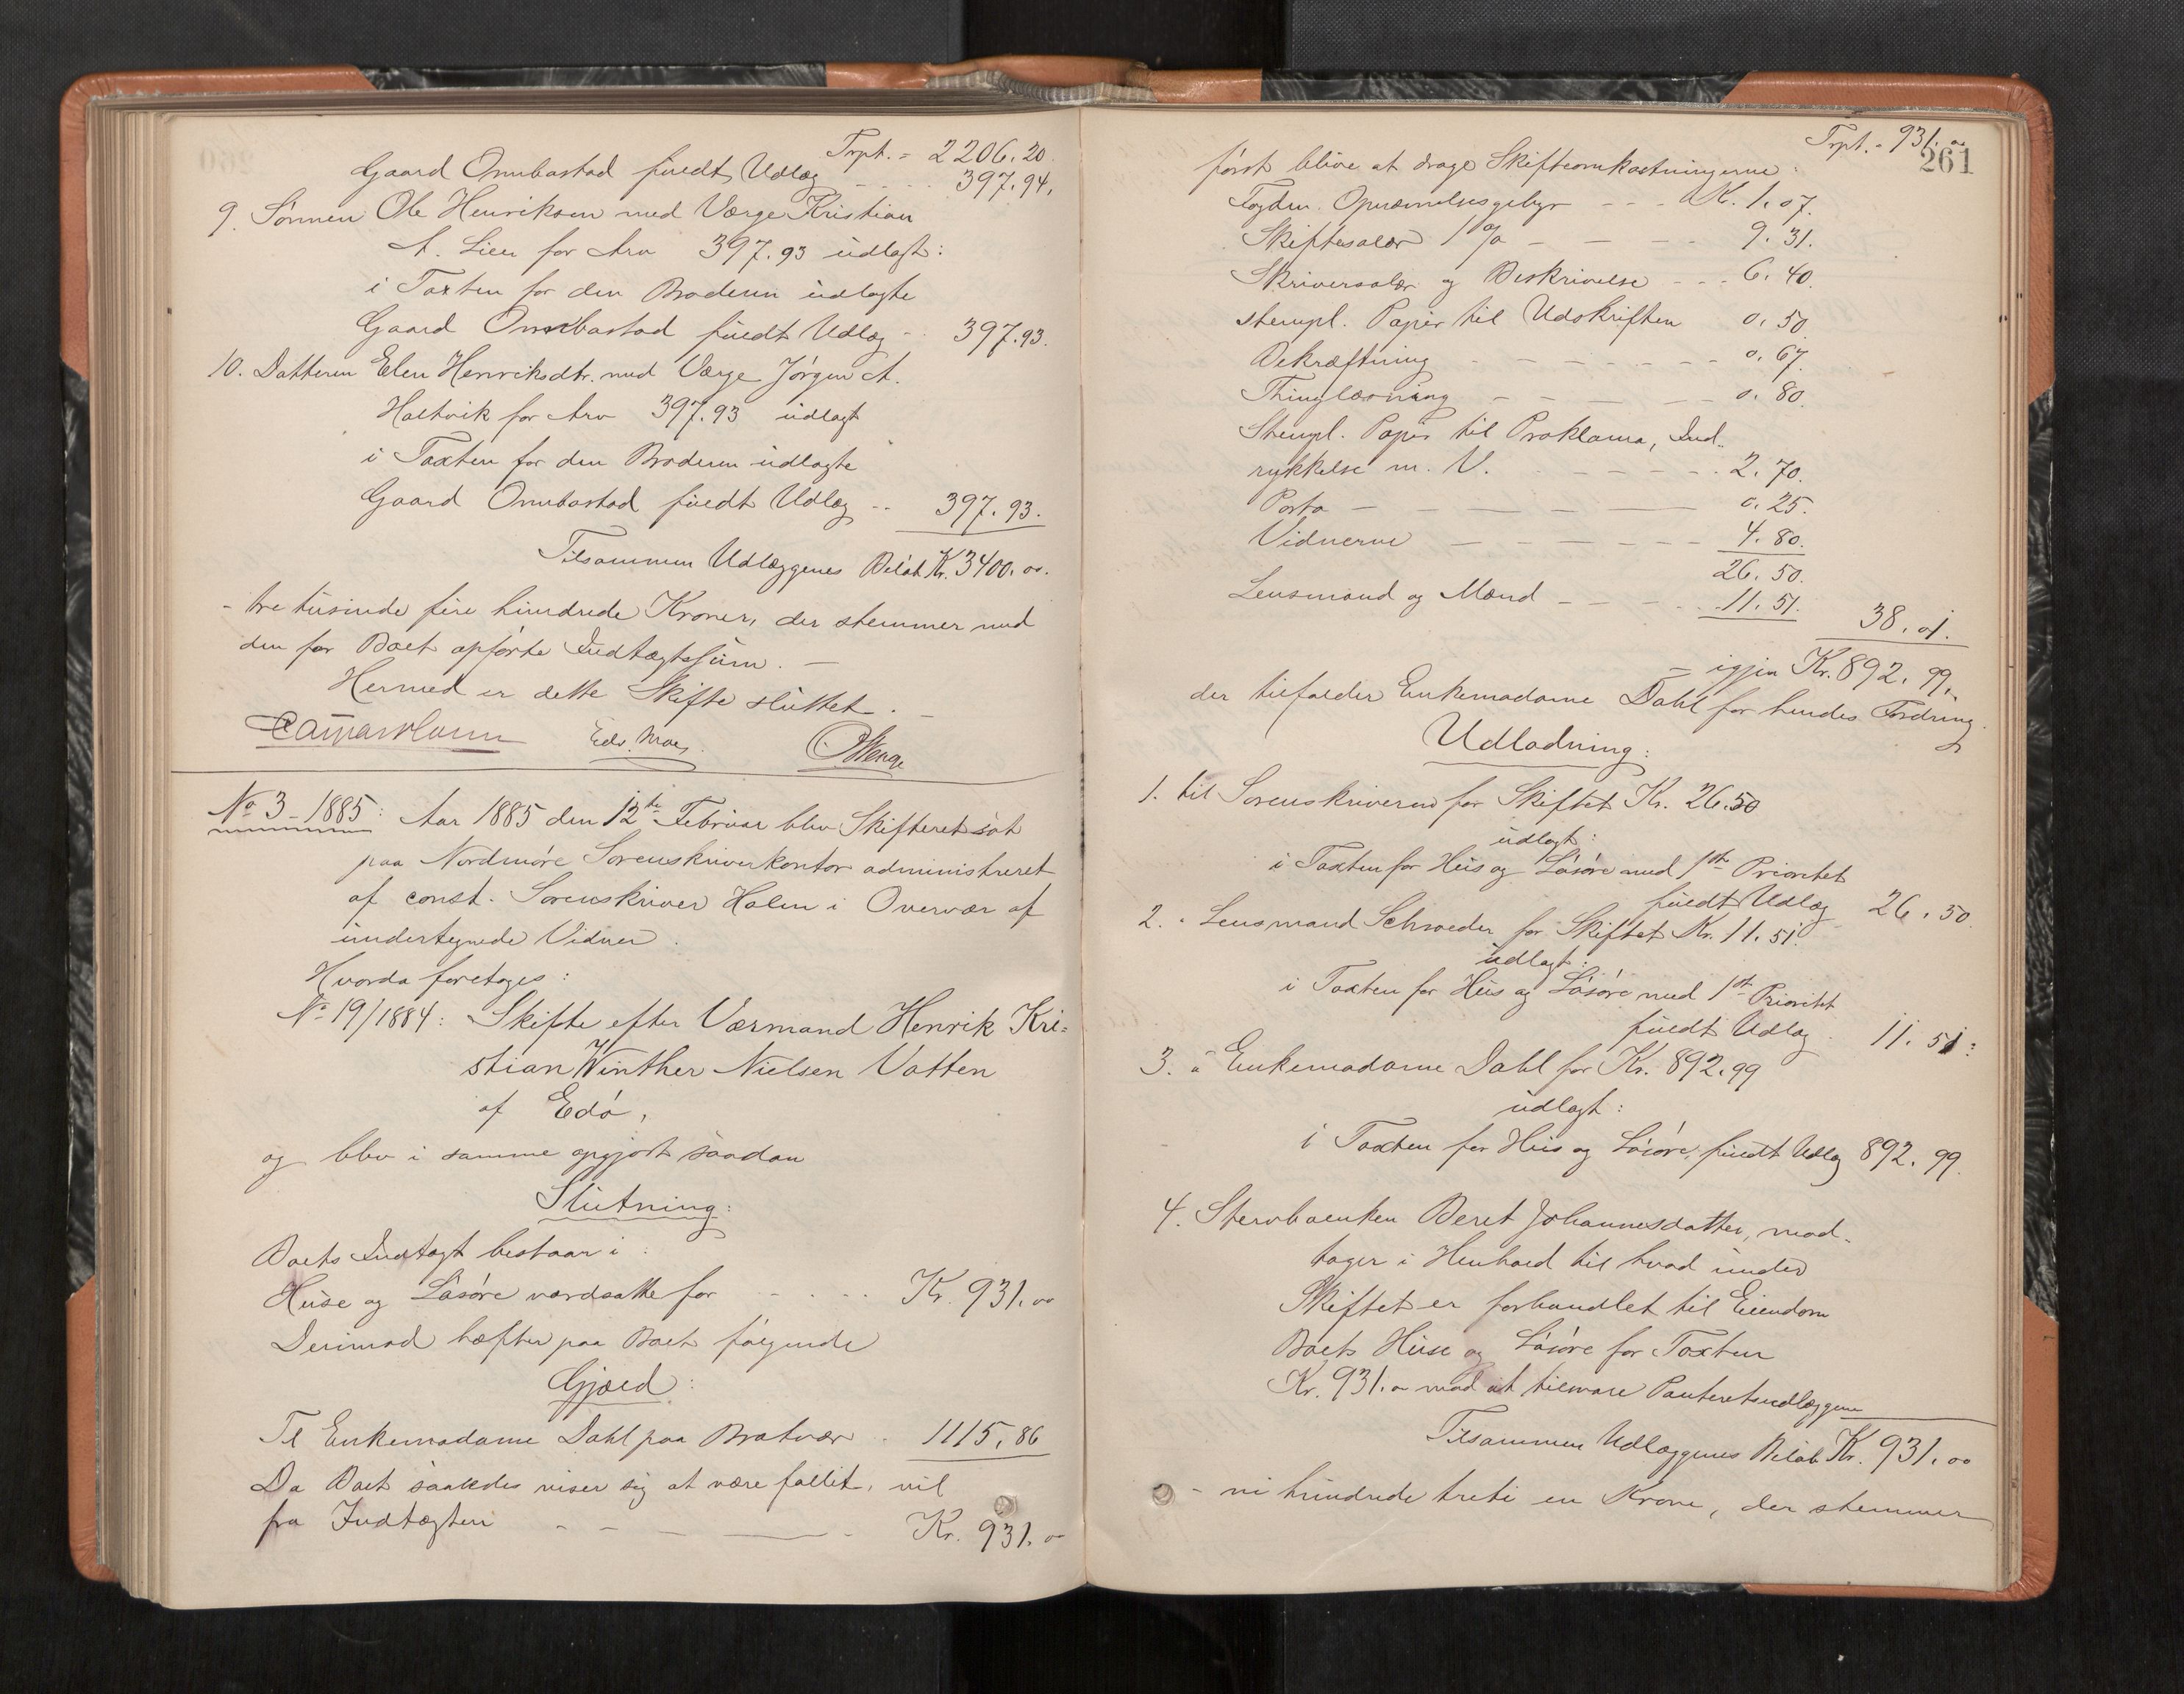 Trpt. = 2206.20
Gaard Ombastad fuldt Udlæg - - - - 397.94.
9. Sønnen Ole Henriksen med Værge Kristian
A. Lien for Arv 397.93 udlagt:
i Taxten for den Broderen udlagte
Gaard Ombastad fuldt Udlæg - - 397.93.
10. Datteren Elen Henriksdtr. med Værge Jørgen A.
Holtvik for Arv 397.93 udlagt
i Taxten for den Broderen udlagte
Gaard Ombastad fuldt Udlæg - - 397.93.
Tilsammen Udlæggenes Beløb Kr. 3400.00.
- tre tusinde fire hundrede Kroner, der stemmer med
den for Boet opførte Indtægtssum. -
Hermed er dette Skifte sluttet. -
Edv. Moe.
No 3 - 1885: Aar 1885 den 12te Februar blev Skifteret sat
paa Nordmøre Sorenskriverkontor administreret
af const. Sorenskriver Holm i Overvær af
undertegnede Vidner.
Hvorda foretoges:
No 19/1884: Skifte efter Værmand Henrik Kri=
stian Winther Nielsen Vatten
af Edø,
og blev i samme opgjort saadan
Slutning:
Boets Indtægt bestaar i:
Huse og Løsøre værdsatte for - - - - Kr. 931.00
Derimod hæfter paa Boet følgende
Gjæld:
Til Enkemadame Dahl paa Bratvær - 1115.86
Da Boet saaledes viser sig at være fallit, vil
fra Indtægten - - - - - Kr. 931.00
Trpt. = 931.00
261
først blive at drage Skifteomkostningerne:
Fogden Opnævnelsesgebyr - - - Kr. 1.07.
Skiftesalær 1 % - - - - 9.31.
Skriversalær og Beskrivelse - - - 6.40.
stempl. Papir til Udskriften 0.50.
Bekræftning - - - - - - - 0.67.
Thinglæsning - - - - - - 0.80.
Stempl. Papir til Proklama, Ind-
rykkelse m. V. - - - - - 2.70.
Porto - - - - - - 0.25.
Vidnerne - - - - - - 4.80.
26.50.
Lensmand og Mænd - - - - 11.51.
38.01.
- igjen Kr. 892.99,
der tilfalder Enkemadame Dahl for hendes Fordring.
Udlodning:
1. til Sorenskriveren for Skiftet Kr. 26.50
udlagt:
i Taxten for Hus og Løsøre med 1ste Prioritet
fuldt Udlæg 26.50.
2. " Lensmand Schrøder for Skiftet Kr. 11.51.
udlagt:
i Taxten for Hus og Løsøre med 1ste Prioritet
fuldt Udlæg - 11.51:
3. " Enkemadame Dahl for Kr. 892.99
udlagt:
i Taxten for Hus og Løsøre, fuldt Udlæg 892.99.
4. Stervboenken Beret Johannesdatter, mod-
tager i Henhold til hvad under
Skiftet er forhandlet til Eiendom
Boets Huse og Løsøre for Taxten
Kr. 931.00 mod at tilsvare Panteretsudlæggene
Tilsammen Udlæggenes Beløb Kr. 931.00
- ni hundrede treti en Krone, der stemmer